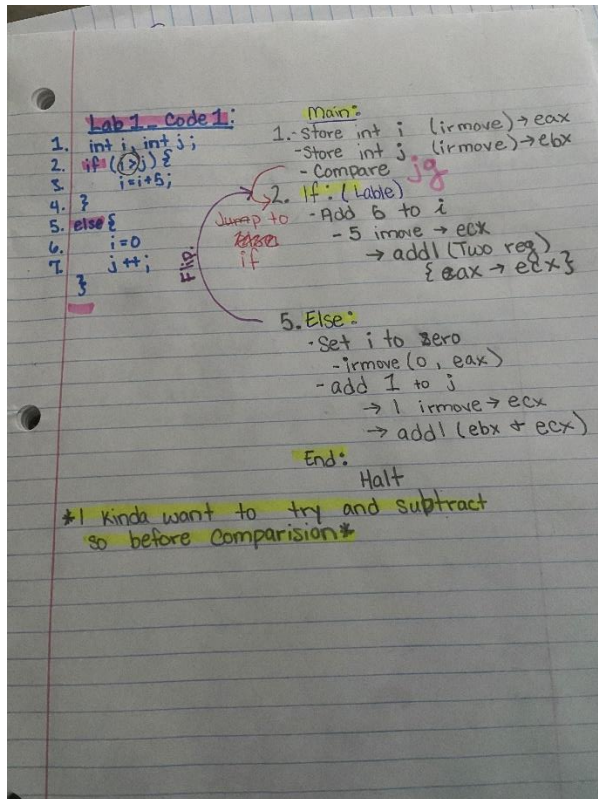 Lab 1 - Code 1:
1. int i, int j;
2. if (i > j) {
3. i=i+5;
4. }
5. else {
6. i=0
7. j++;
}
Main:
1.-Store int i (irmove) → eax
-Store int j (irmove) → ebx
- Compare jg
2. If: (Lable)
-Add 5 to i
- 5 imove → ecx
→ addl (Two reg)
{ eax → ecx}
Jump to
if
Flip.
5. Else:
-Set i to zero
-irmove (0, eax)
-add 1 to j
→ 1 irmove → ecx
→ addl (ebx + ecx)
End:
Halt
*I kinda want to try and subtract
so before comparision*